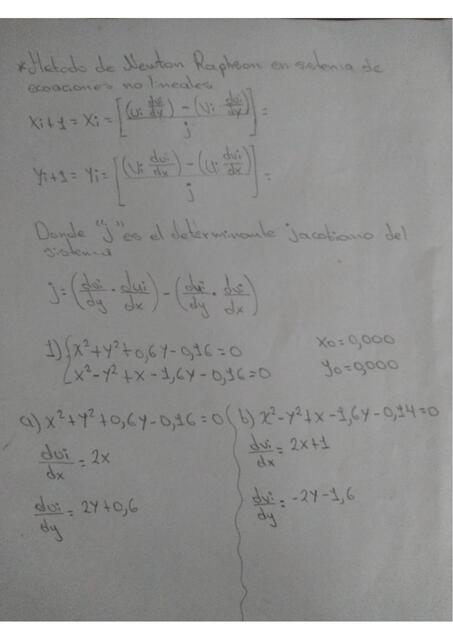 *Metodo de Newton Raphson en sistema de
ecoaciones no lineales
Xi+1 = Xi = [(Ui dvi/dy) - (Vi dui/dy) / j] =
Yi+1 = Yi = [(Vi dui/dx) - (Ui dvi/dx) / j] =
Donde "j" es el determinante jacobiano del
sistema
j = (dvi/dy · dui/dx) - (dui/dy · dvi/dx)
1) { x²+y²+0,6y-0,16=0      X0=0,000
x²-y²+x-1,6y-0,16=0      y0=0,000
a) x²+y²+0,6y-0,16=0 ( b) x²-y²+x-1,6y-0,14=0
dui/dx = 2x      dvi/dx = 2x+1
dui/dy = 2y+0,6      dvi/dy = -2y-1,6